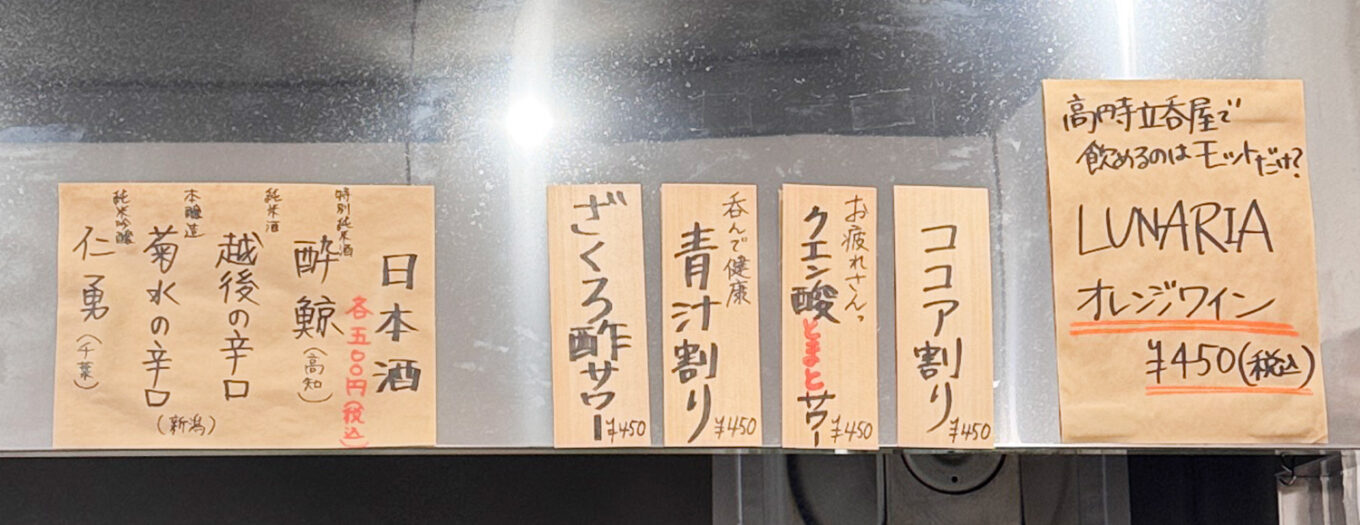 日本酒
各五〇〇円(税込)
特別純米酒
酔鯨
(高知)
純米酒
越後の辛口
本醸造
菊水の辛口
(新潟)
純米吟醸
仁勇
(千葉)
ざくろ酢サワー
¥450
呑んで健康
青汁割り
¥450
お疲れさんっ
クエン酸とまとサワー
¥450
ココア割り
¥450
高円寺立呑屋で
飲めるのはモットだけ?
LUNARIA
オレンジワイン
¥450(税込)